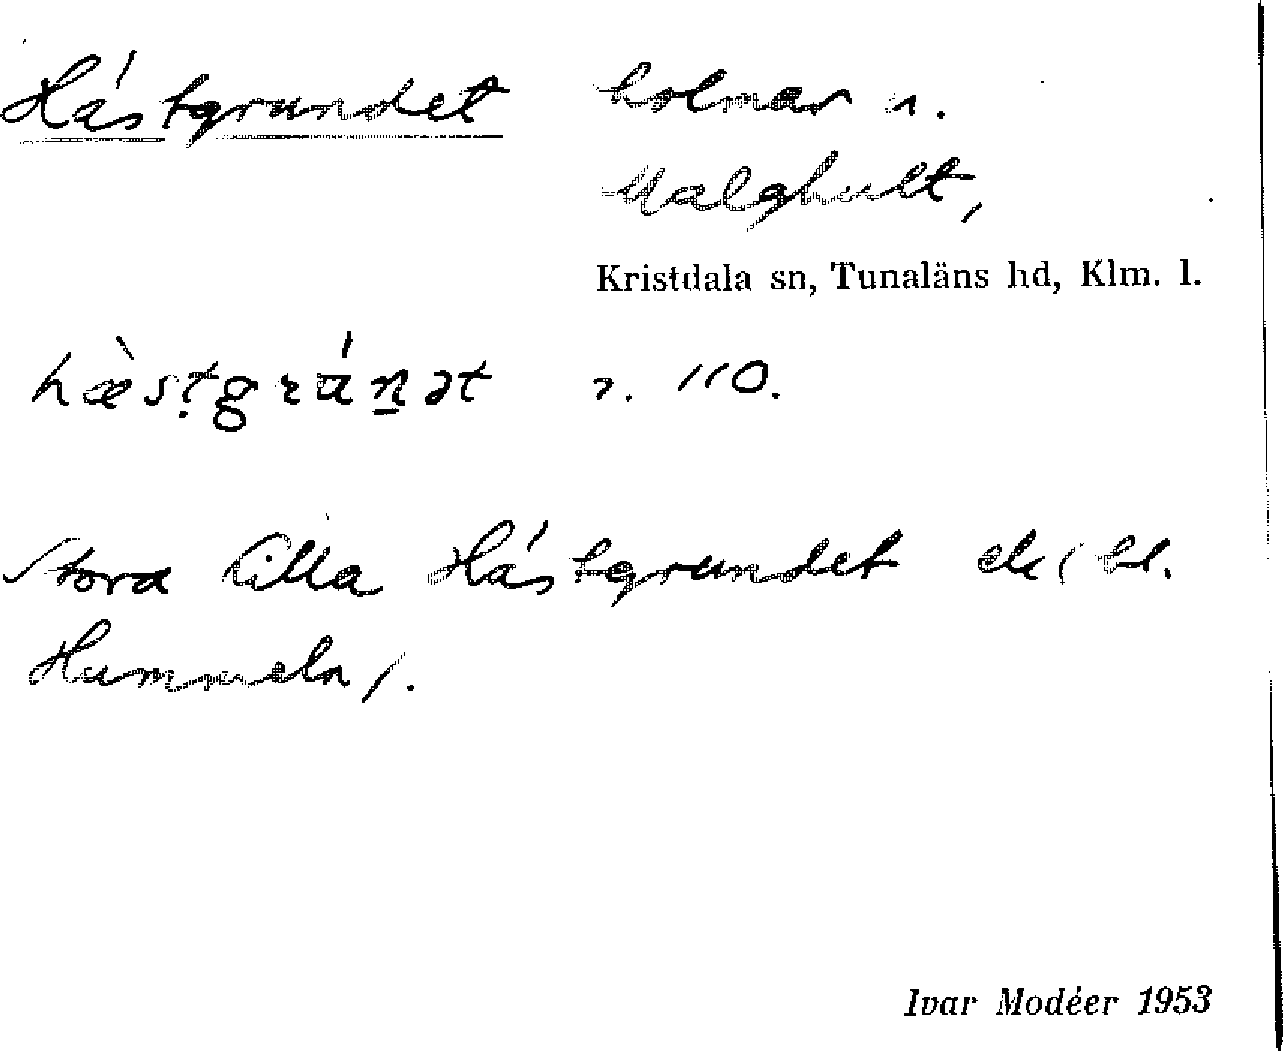 Hästgrundet holmar n.
Malghult,
Kristdala sn, Tunaläns hd, Klm. l.
hæ̀stgrúnət n. 110.
Stora Lilla Hästgrundet ek(bl.
Hummeln).
Ivar Modéer 1953